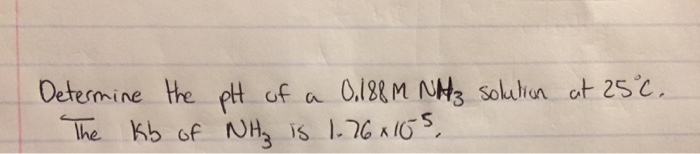 Determine the pH of a 0.188 M NH₃ solution at 25°C.
The Kb of NH₃ is 1.76 x 10⁻⁵.